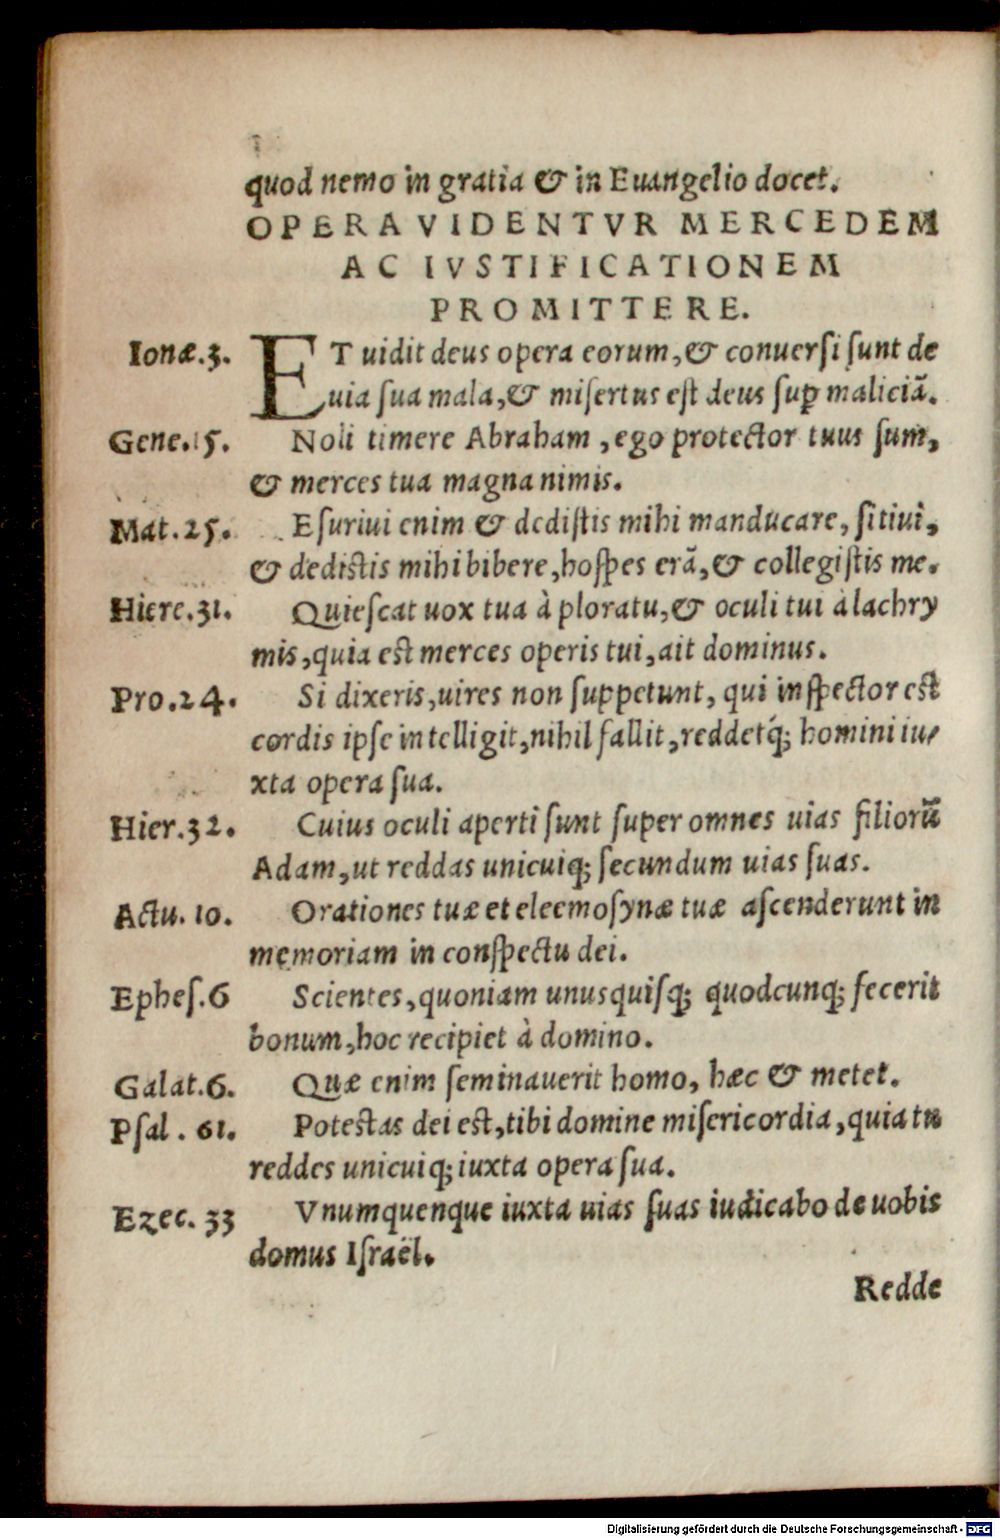 quod nemo in gratia & in Euangelio docet.
OPERA VIDENTVR MERCEDEM
AC IVSTIFICATIONEM
PROMITTERE.
Ionæ.3. ET uidit deus opera eorum,& conuersi sunt de
uia sua mala,& misertus est deus suꝑ maliciã.
Gene.15. Noli timere Abraham ,ego protector tuus sum,
& merces tua magna nimis.
Mat.25. Esuriui enim & dedistis mihi manducare, sitiui,
& dedistis mihi bibere,hospes erã,& collegistis me.
Hiere.31. Quiescat uox tua à ploratu,& oculi tui à lachry
mis,quia est merces operis tui,ait dominus.
Pro.24. Si dixeris,uires non suppetunt, qui inspector est
cordis ipse intelligit,nihil fallit,reddetq́; homini iu/
xta opera sua.
Hier.32. Cuius oculi aperti sunt super omnes uias filiorũ
Adam,ut reddas unicuiq; secundum uias suas.
Actu. 10. Orationes tuæ et eleemosynæ tuæ ascenderunt in
memoriam in conspectu dei.
Ephes.6 Scientes,quoniam unusquisq; quodcunq; fecerit
bonum,hoc recipiet à domino.
Galat.6. Quæ enim seminauerit homo, hæc & metet.
Psal . 61. Potestas dei est,tibi domine misericordia,quia tu
reddes unicuiq; iuxta opera sua.
Ezec. 33 Vnumquenque iuxta uias suas iudicabo de uobis
domus Israël.
Redde
Digitalisierung gefördert durch die Deutsche Forschungsgemeinschaft - DFG